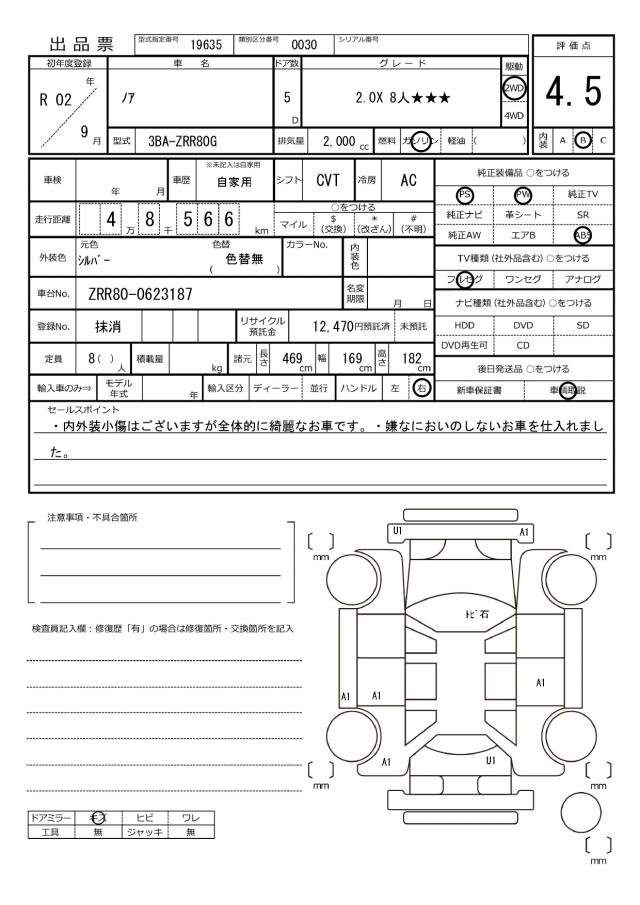 出品票
型式指定番号 19635 類別区分番号 0030 シリアル番号
評価点
4.5
内装 A B C
初年度登録 車名 ドア数 グレード 駆動
R 02 年 9 月
ノア
5 D
2.0X 8人★★★
2WD
4WD
型式 3BA-ZRR80G 排気量 2,000 cc 燃料 ガソリン 軽油 ( )
車検 年 月 車歴 ※未記入は自家用 自家用 シフト CVT 冷房 AC
走行距離 4 万 8 千 5 6 6 km
○をつける
マイル $ (交換) * (改ざん) # (不明)
外装色 元色 シルバー 色替 色替無 ( ) カラーNo. 内装色
車台No. ZRR80-0623187 名変期限 月 日
登録No. 抹消 リサイクル預託金 12,470円預託済 未預託
定員 8( ) 人 積載量 kg 諸元 長さ 469 cm 幅 169 cm 高さ 182 cm
輸入車のみ⇒ モデル年式 年 輸入区分 ディーラー 並行 ハンドル 左 右
純正装備品 ○をつける
PS PW 純正TV
純正ナビ 革シート SR
純正AW エアB ABS
TV種類 (社外品含む) ○をつける
フルセグ ワンセグ アナログ
ナビ種類 (社外品含む) ○をつける
HDD DVD SD
DVD再生可 CD
後日発送品 ○をつける
新車保証書 車輌取説
セールスポイント
・内外装小傷はございますが全体的に綺麗なお車です。・嫌なにおいのしないお車を仕入れまし
た。
注意事項・不具合箇所
検査員記入欄：修復歴「有」の場合は修復箇所・交換箇所を記入
ドアミラー キズ ヒビ ワレ
工具 無 ジャッキ 無
U1 A1
mm mm
トビ石
A1 A1 A1
A1 U1
mm mm
mm